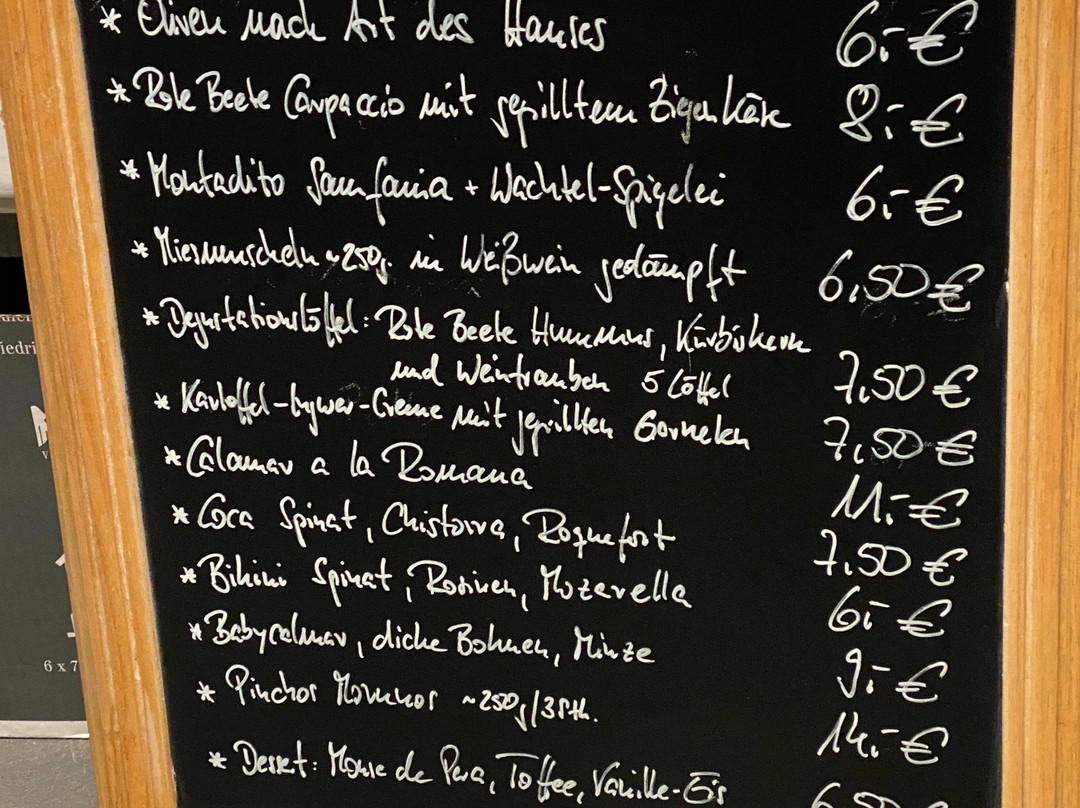 * Oliven nach Art des Hauses 6,- €
* Rote Beete Carpaccio mit gegrilltem Zigenkäse 8,- €
* Montadito Samfaina + Wachtel-Spigelei 6,- €
* Miesmuscheln ~250g. in Weißwein gedämpft 6,50 €
* Degustationslöffel: Rote Beete Hummus, Kürbiskern
und Weintrauben 5 Löffel 7,50 €
* Kartoffel-Ingwer-Creme mit gegrillten Garnelen 7,50 €
* Calamar a la Romana 11,- €
* Coca Spinat, Chistorra, Roquefort 7,50 €
* Bikini Spinat, Rosinen, Mozarella 6,- €
* Babycalmar, dicke Bohnen, Minze 9,- €
* Pinchos Morunos ~250g/3Stk. 14,- €
* Dessert: Mouse de Pera, Toffee, Vanille-Eis 6,50
iedri
6 x 7